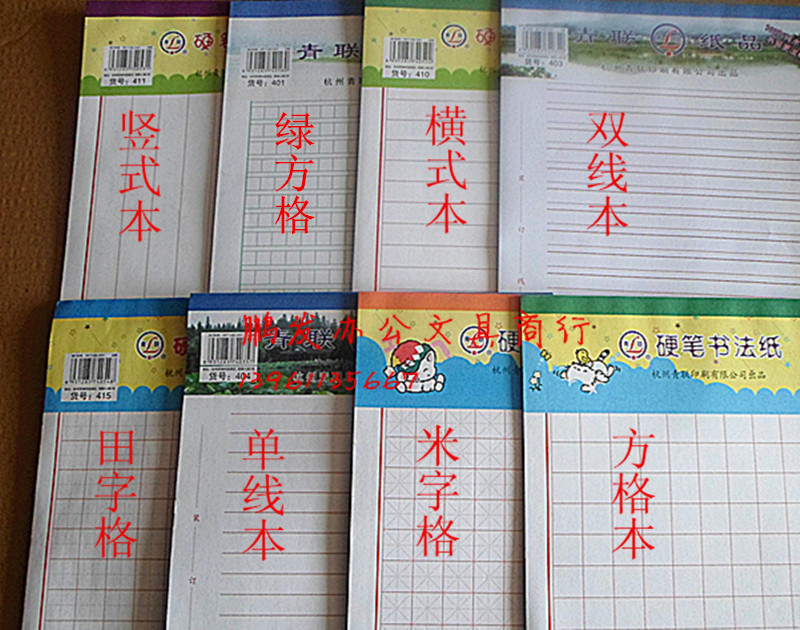 硬笔
货号：411
竖式本
青联
杭州青
货号：401
绿方格
硬
杭州
货号：410
横式本
青联 纸品
杭州青联印刷有限公司出品
货号：403
双线本
装
订
线
硬
杭
货号：415
田字格
青联
货号：404
单线本
装
订
鹏发办公文具商行
13961135667
硬
杭州青
米字格
硬笔书法纸
杭州青联印刷有限公司出品
方格本